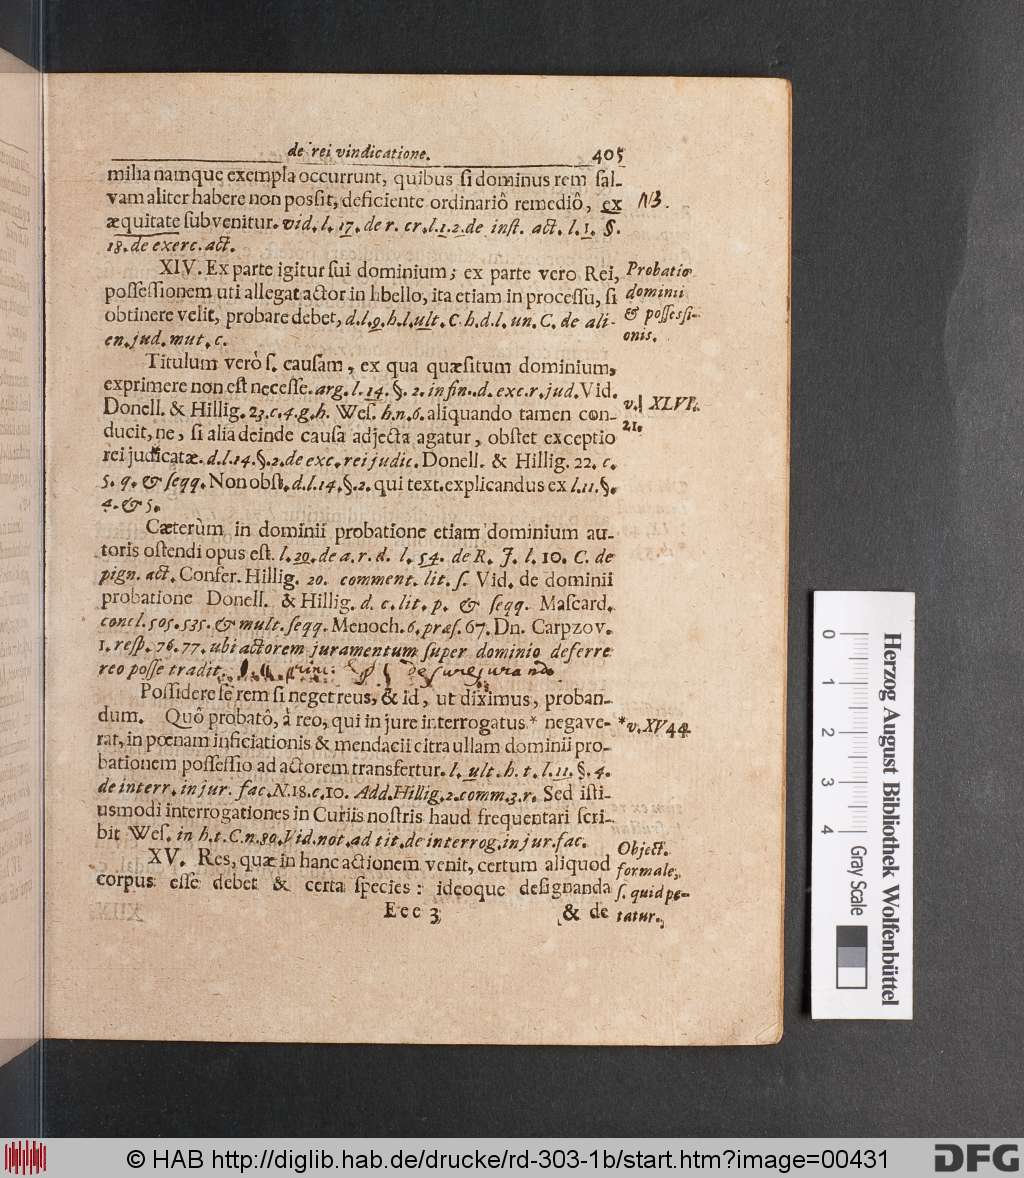 de rei vindicatione. 405
milia namque exempla occurrunt, quibus si dominus rem sal-
vam aliter habere non possit, deficiente ordinariô remediô, ex
æquitate subvenitur. vid. l. 17. de r. cr. l. 1. 2. de inst. act. l. 1. §.
18. de exerc. act.
NB.
XIV. Ex parte igitur sui dominium; ex parte vero Rei,
possessionem uti allegat actor in libello, ita etiam in processu, si
obtinere velit, probare debet, d. l. 9. h. l. ult. C. h. d. l. un. C. de ali-
en. jud. mut. c.
Probatio
dominii
& possessi-
onis.
Titulum verò s. causam, ex qua quæsitum dominium,
exprimere non est necesse. arg. l. 14. §. 2. in fin. d. exc. r. jud. Vid.
Donell. & Hillig. 23. c. 4. g. h. Wes. h. n. 6. aliquando tamen con-
ducit, ne, si alia deinde causa adjecta agatur, obstet exceptio
rei judicatæ. d. l. 14. §. 2. de exc. rei judic. Donell. & Hillig. 22. c.
5. q. & seqq. Non obst. d. l. 14. §. 2. qui text. explicandus ex l. 11. §.
4. & 5.
v. XLVI.
21.
Cæterùm in dominii probatione etiam dominium au-
toris ostendi opus est. l. 20. de a. r. d. l. 54. de R. J. l. 10. C. de
pign. act. Confer. Hillig. 20. comment. lit. s. Vid. de dominii
probatione Donell. & Hillig. d. c. lit. p. & seqq. Mascard.
concl. 505. 535. & mult. seqq. Menoch. 6. præs. 67. Dn. Carpzov.
1. resp. 76. 77. ubi actorem juramentum super dominio deferre
reo posse tradit. de Jurejurando
Possidere se rem si neget reus, & id, ut diximus, proban-
dum. Quô probatô, à reo, qui in jure interrogatus * negave-
rat, in pœnam inficiationis & mendacii citra ullam dominii pro-
bationem possessio ad actorem transfertur. l. ult. h. t. l. 11. §. 4.
de interr. in jur. fac. N. 18. c. 10. Add. Hillig. 2. comm. 3. r. Sed isti-
usmodi interrogationes in Curiis nostris haud frequentari scri-
bit Wes. in h. t. C. n. 80. Vid. not. ad tit. de interrog. in jur. fac.
* v. XV 44.
XV. Res, quæ in hanc actionem venit, certum aliquod
corpus esse debet & certa species: ideoque designanda
Object.
formale,
s. quid pe-
tatur.
Eee 3 & de
0 1 2 3 4
Gray Scale
Herzog August Bibliothek Wolfenbüttel
© HAB http://diglib.hab.de/drucke/rd-303-1b/start.htm?image=00431
DFG